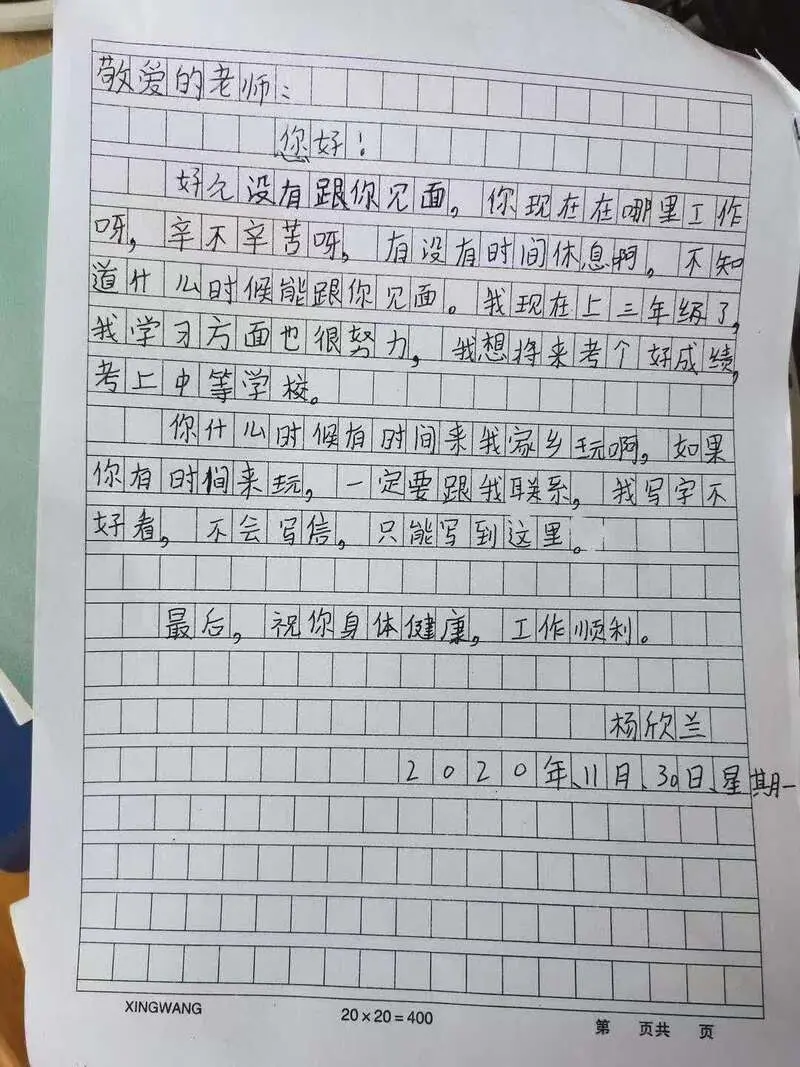 敬爱的老师：
您好！
好久没有跟你见面，你现在在哪里工作
呀，辛不辛苦呀，有没有时间休息啊。不知
道什么时候能跟你见面。我现在上三年级了，
我学习方面也很努力，我想将来考个好成绩，
考上中等学校。
你什么时候有时间来我家乡玩啊，如果
你有时间来玩，一定要跟我联系，我写字不
好看，不会写信，只能写到这里。
最后，祝你身体健康，工作顺利。
杨欣兰
2020年、11月、30日、星期一
XINGWANG
20×20=400
第 页共 页